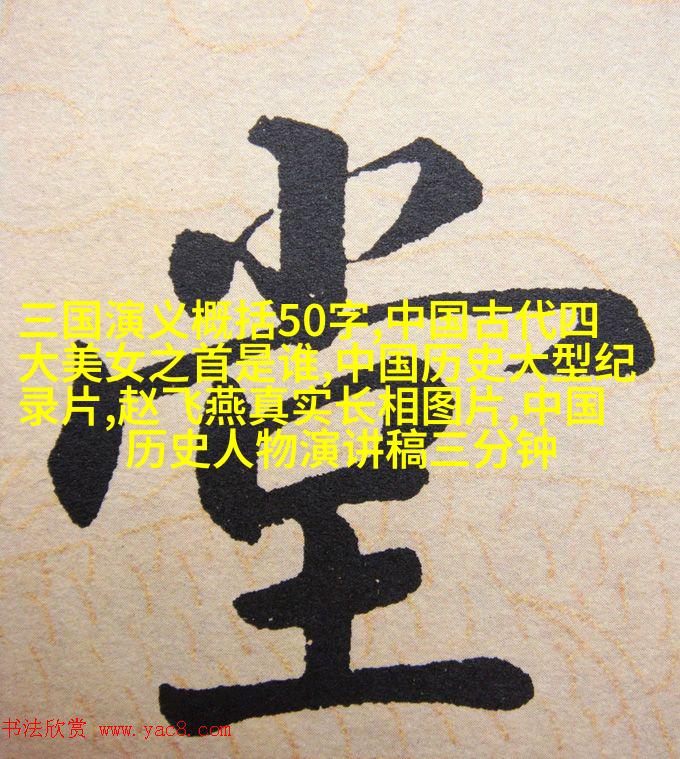 堂
三国演义概括50字,中国古代四
大美女之首是谁,中国历史大型纪
录片,赵飞燕真实长相图片,中国
历史人物演讲稿三分钟
书法欣赏 www.yac8.com